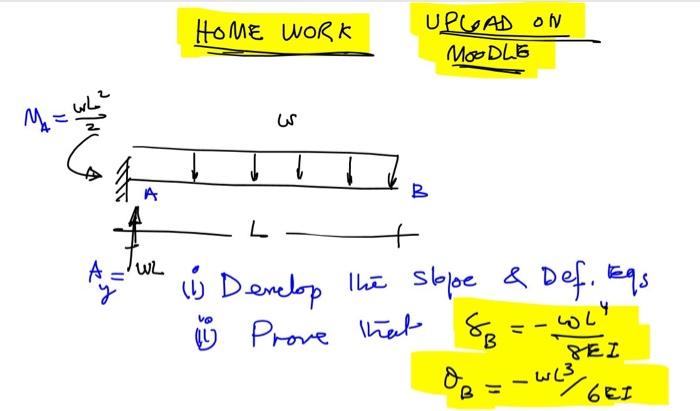 HOME WORK
UPLOAD ON
MOODLE
M_A = wL²/2
w
A
B
L
A_y = wL
(i) Develop the slope & Def. Eqs
(ii) Prove that δ_B = - wL⁴/8EI
θ_B = - wL³/6EI